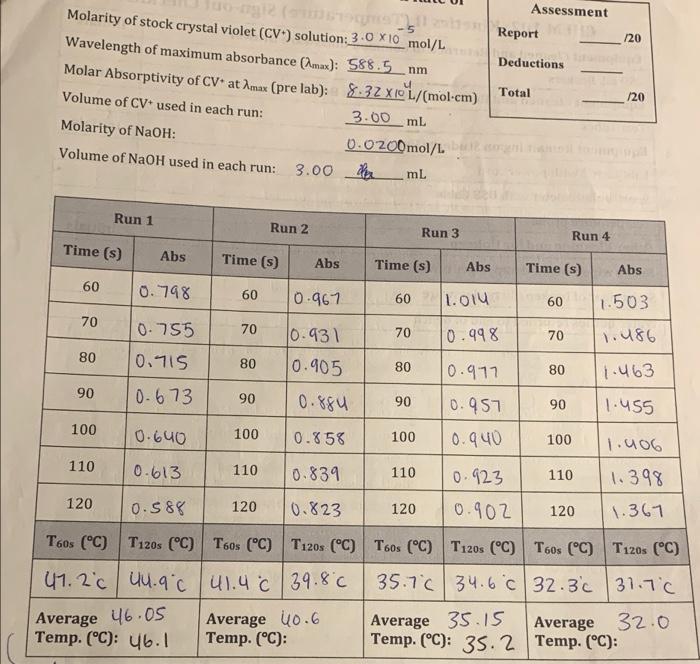 Assessment
Report /20
Deductions
Total /20
Molarity of stock crystal violet (CV⁺) solution: 3.0 x 10⁻⁵ mol/L
Wavelength of maximum absorbance (λmax): 588.5 nm
Molar Absorptivity of CV⁺ at λmax (pre lab): 8.32 x 10⁴ L/(mol·cm)
Volume of CV⁺ used in each run: 3.00 mL
Molarity of NaOH: 0.0200 mol/L
Volume of NaOH used in each run: 3.00 mL
Run 1 Run 2 Run 3 Run 4
Time (s) Abs Time (s) Abs Time (s) Abs Time (s) Abs
60 0.798 60 0.967 60 1.014 60 1.503
70 0.755 70 0.931 70 0.998 70 1.486
80 0.715 80 0.905 80 0.977 80 1.463
90 0.673 90 0.884 90 0.957 90 1.455
100 0.640 100 0.858 100 0.940 100 1.406
110 0.613 110 0.839 110 0.923 110 1.398
120 0.588 120 0.823 120 0.902 120 1.367
T60s (°C) T120s (°C) T60s (°C) T120s (°C) T60s (°C) T120s (°C) T60s (°C) T120s (°C)
47.2°c 44.9°c 41.4°c 39.8°c 35.7°c 34.6°c 32.3°c 31.7°c
Average 46.05 Average 40.6 Average 35.15 Average 32.0
Temp. (°C): 46.1 Temp. (°C): Temp. (°C): 35.2 Temp. (°C):